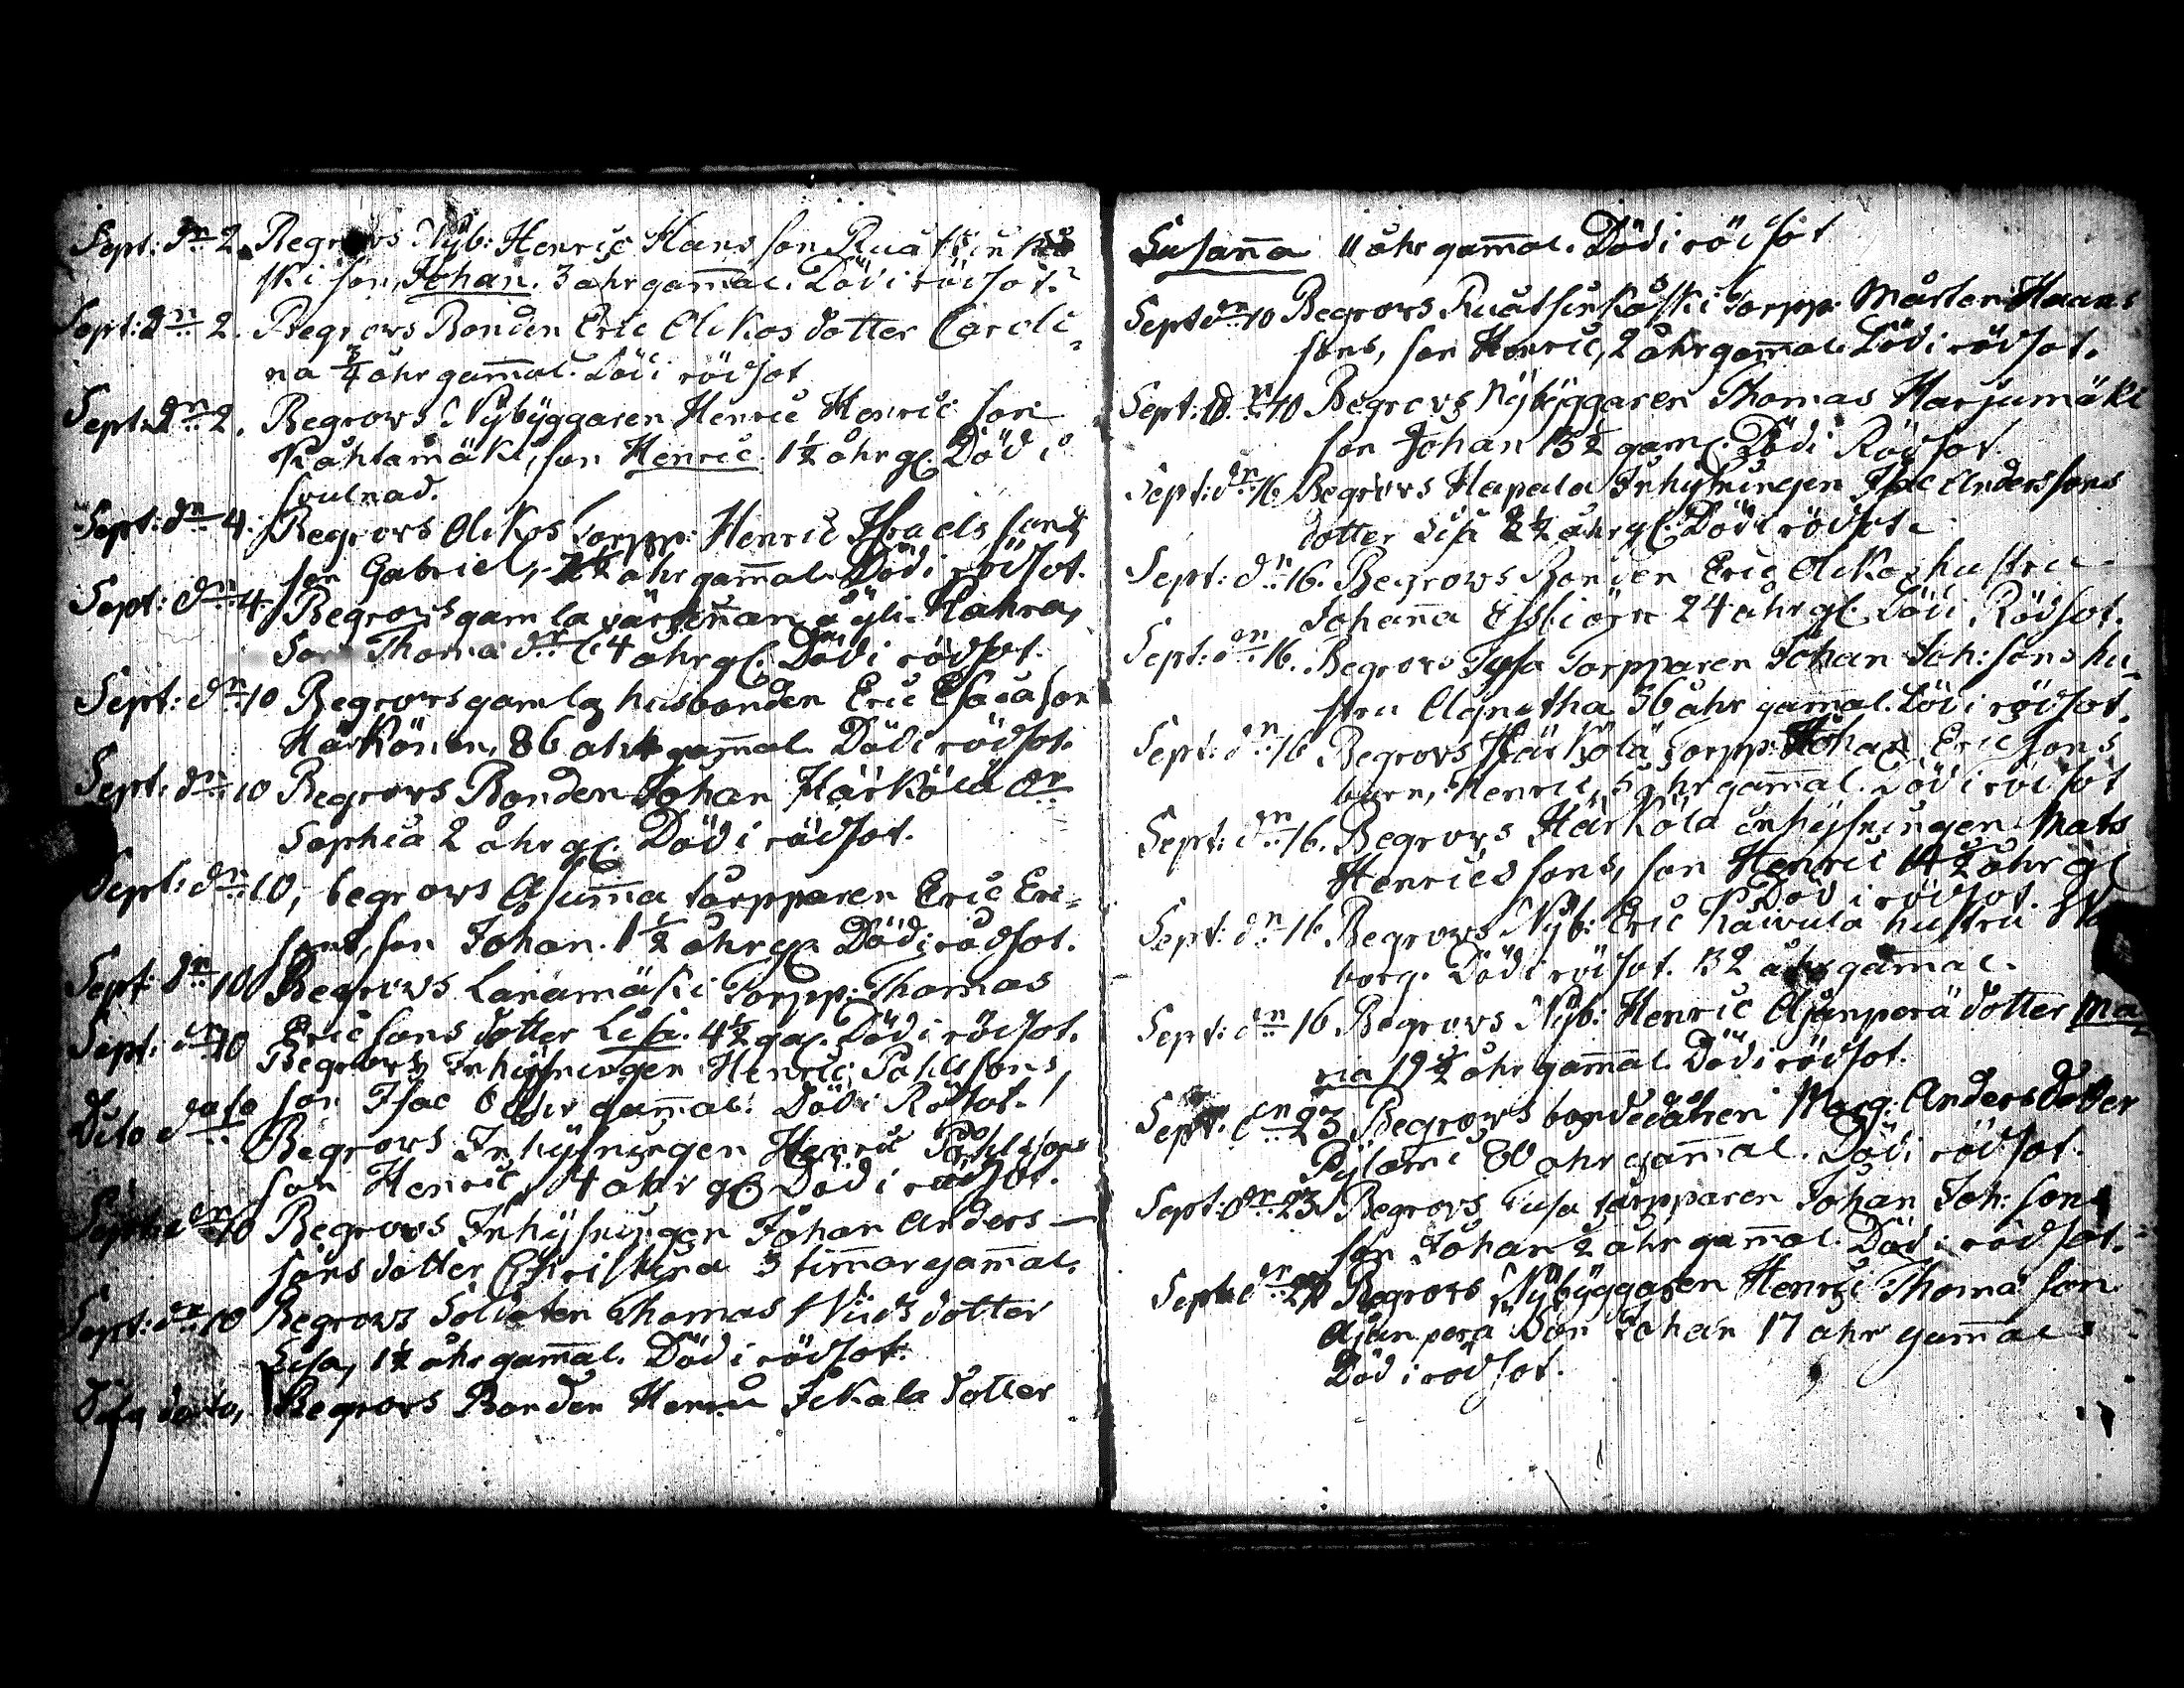 Sept: dn 2. Begrovs Nyb: Henric Hans son Ruatsinkå
ski son, Johan. 3 åhr gam̄al. Död i rödsot.
Sept: dn 2. Begrovs Bonden Eric Alikos dotter Caroli-
na 3/4 åhr gam̄al. Död i rödsot
Sept: dn 2. Begrovs Nybyggaren Henric Henric son
Kåhtamäki, son Henric 1½ åhr gl. Död i
svulnad.
Sept: dn 4. Begrovs Alikos Torpp: Henric Israels sons
son Gabriel, åhr gam̄al. Död i rödsot.
Sept: dn 4. Begrovs gamla Yli-Hahra,
Thoma 64 åhr gl. Död i rödsot.
Sept: dn 10 Begrovs gamla husbonden Eric Esaiason
Härkönen, 86 åhr gam̄al. Död i rödsot.
Sept: dn 10 Begrovs Bonden Johan Härkölä dr
Sophia 2 åhr gl. Död i rödsot.
Sept: dn 10, begrovs Asum̄a torpparen Eric Eri-
sons, son Johan. 1½ åhr gl. Död i rödsot.
Sept: dn 10 Begrovs Lanamäki Torpp: Thomas
Ericsons dotter Lisa. 4½ gl. Död i rödsot.
Sept: dn 10 Begrovs Inhysningen Henric Påhlsons,
son Isac 6 åhr gam̄al. Död i Rödsot.
Dito dato Begrovs Inhysningen Henric Påhlsons
son Henric, 4 åhr gl. Död i rödsot.
Sept: dn 10 Begrovs Inhysningen Johan Anders-
sons dotter Christina 3 tim̄ar gam̄al.
Sept: dn 10 Begrovs Soldaten Thomas dotter
Lisa, 1½ åhr gam̄al. Död i rödsot.
Dito dato, Begrovs Bonden Henric Ickala dotter
Susan̄a 11 åhr gam̄al. Död i rödsot
Sept dn 10 Begrovs Ruatsinkåski Torpp: Mårten Hans
sons, son Henric, 2 åhr gam̄al. Död i rödsot.
Sept: dn 10 Begrovs Nybyggaren Thomas Harjumäki
son Johan 13½ gaml. Död i Rödsot.
Sept: dn 16 Begrovs Hapala Inhysningen Isac Anderssons
dotter Lisa 2½ åhr gl. Död i rödsot.
Sept: dn 16. Begrovs Bonden Eric Alikos hustru
Johan̄a Essbiörn 24 åhr gl. Död i Rödsot.
Sept: dn 16. Begrovs Tysa Torpparen Johan Joh: sons hu-
stru Agnetha 36 åhr gam̄al. Död i rödsot.
Sept: dn 16 Begrovs Härkölä Torpp: Johan Ericsons
barn, Henric, 5 åhr gam̄al. Död i rödsot
Sept: dn 16. Begrovs Härkölä inhysningen Mats
Henricsons, son Henric ½ åhr gl
Död i rödsot.
Sept: dn 16. Begrovs Nyb: Eric Kaivula hustru Wa
borg. Död i rödsot. 32 åhr gam̄al.
Sept: dn 16. Begrovs Nyb: Henric Ajanperä dotter Ma-
ria 19½ åhr gam̄al. Död i rödsot.
Sept. dn 23 Begrovs bondeänkan Marg: Andersdotter
Pylami 80 åhr gam̄al. Död i rödsot.
Sept: dn 23 Begrovs Tusa torpparen Johan Joh: sons
son Johan 2 åhr gam̄al. Död i rödsot.
Sept: dn Begrovs Nybyggaren Henric Thomason
Ajanperä Son Johan 17 åhr gam̄al.
Död i rödsot.